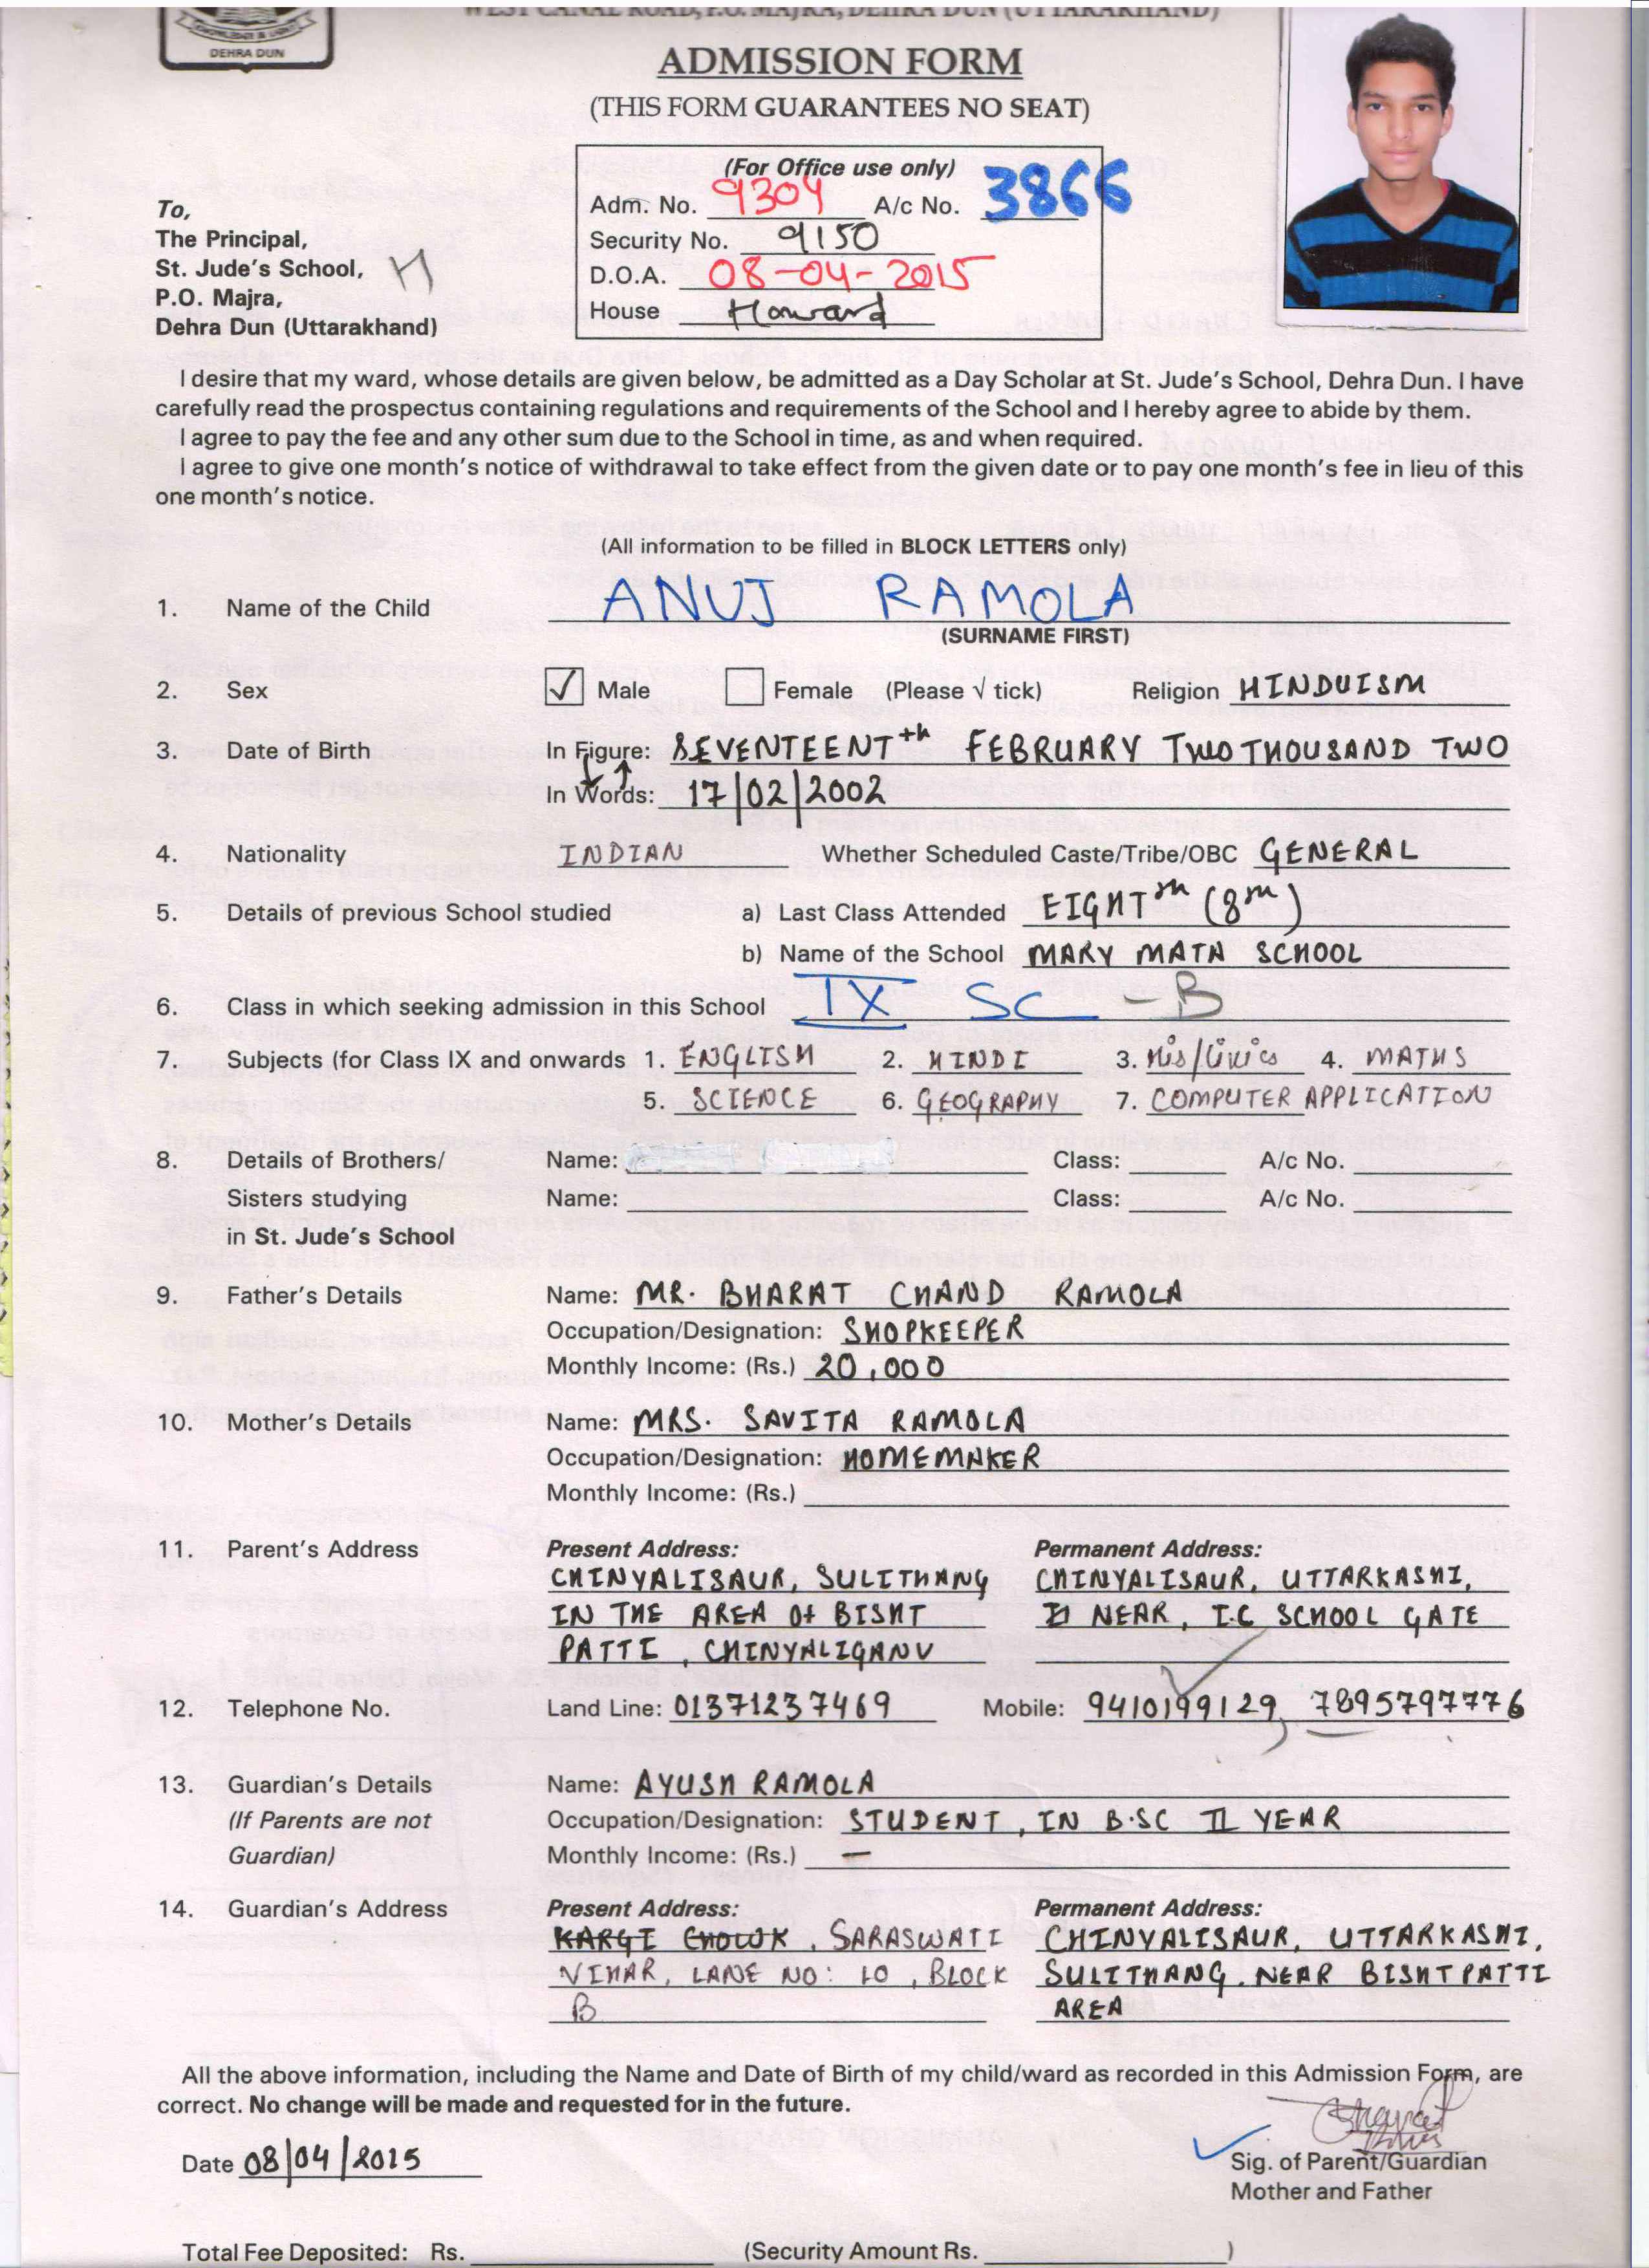 WEST CANAL ROAD, P.O. MAJRA, DEHRA DUN (UTTARAKHAND)
DEHRA DUN
ADMISSION FORM
(THIS FORM GUARANTEES NO SEAT)
(For Office use only)
Adm. No. 9304 A/c No. 3866
Security No. 9150
D.O.A. 08-04-2015
House Howard
To,
The Principal,
St. Jude's School, H
P.O. Majra,
Dehra Dun (Uttarakhand)
I desire that my ward, whose details are given below, be admitted as a Day Scholar at St. Jude's School, Dehra Dun. I have
carefully read the prospectus containing regulations and requirements of the School and I hereby agree to abide by them.
I agree to pay the fee and any other sum due to the School in time, as and when required.
I agree to give one month's notice of withdrawal to take effect from the given date or to pay one month's fee in lieu of this
one month's notice.
(All information to be filled in BLOCK LETTERS only)
1. Name of the Child ANUJ RAMOLA
(SURNAME FIRST)
2. Sex ✓ Male Female (Please √ tick) Religion HINDUISM
3. Date of Birth In Figure: SEVENTEENTth FEBRUARY TWO THOUSAND TWO
In Words: 17/02/2002
4. Nationality INDIAN Whether Scheduled Caste/Tribe/OBC GENERAL
5. Details of previous School studied a) Last Class Attended EIGHTth (8th)
b) Name of the School MARY MATA SCHOOL
6. Class in which seeking admission in this School IX SC - B
7. Subjects (for Class IX and onwards 1. ENGLISH 2. HINDI 3. His/Civics 4. MATHS
5. SCIENCE 6. GEOGRAPHY 7. COMPUTER APPLICATION
8. Details of Brothers/ Name: Class: A/c No.
Sisters studying Name: Class: A/c No.
in St. Jude's School
9. Father's Details Name: MR. BHARAT CHAND RAMOLA
Occupation/Designation: SHOPKEEPER
Monthly Income: (Rs.) 20,000
10. Mother's Details Name: MRS. SAVITA RAMOLA
Occupation/Designation: HOMEMAKER
Monthly Income: (Rs.)
11. Parent's Address Present Address: Permanent Address:
CHINYALISAUR, SULITHANG CHINYALISAUR, UTTARKASHI,
IN THE AREA Of BISHT NEAR, I.C SCHOOL GATE
PATTI, CHINYALIGANV
12. Telephone No. Land Line: 01371237469 Mobile: 9410199129, 7895797776
13. Guardian's Details Name: AYUSH RAMOLA
(If Parents are not Occupation/Designation: STUDENT, IN B.SC II YEAR
Guardian) Monthly Income: (Rs.) —
14. Guardian's Address Present Address: Permanent Address:
KARGI CHOWK, SARASWATI CHINYALISAUR, UTTARKASHI,
VIHAR, LANE NO: 10, BLOCK SULITHANG, NEAR BISHT PATTI
B AREA
All the above information, including the Name and Date of Birth of my child/ward as recorded in this Admission Form, are
correct. No change will be made and requested for in the future.
Date 08/04/2015
Sig. of Parent/Guardian
Mother and Father
Total Fee Deposited: Rs. (Security Amount Rs. )